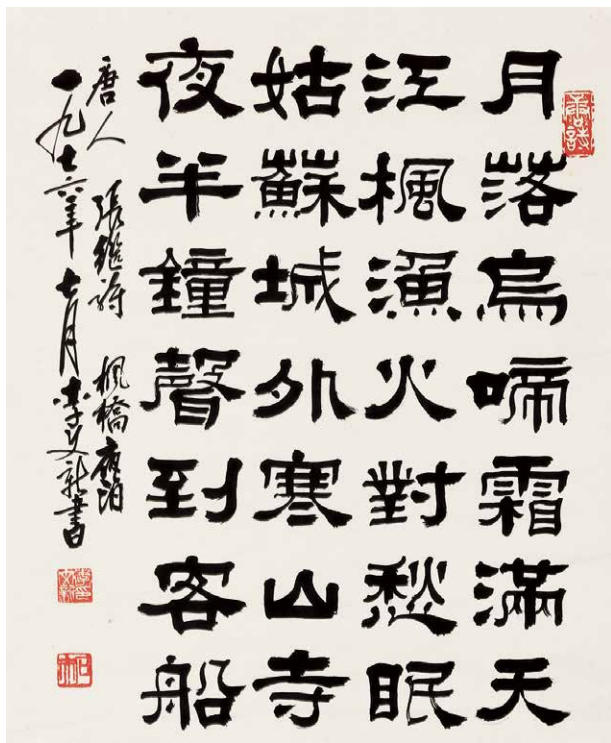 唐詩
月落烏啼霜滿天
江楓漁火對愁眠
姑蘇城外寒山寺
夜半鐘聲到客船
唐人 張繼詩 楓橋夜泊
一九七六年七月李文新書